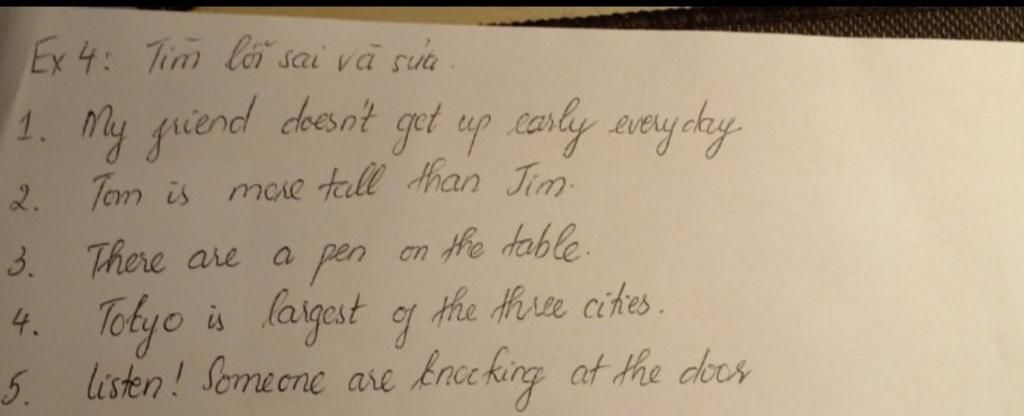 Ex 4: Tìm lỗi sai và sửa.
1. My friend doesn't get up early everyday
2. Tom is more tall than Jim.
3. There are a pen on the table.
4. Tokyo is largest of the three cities.
5. listen! Someone are knocking at the door